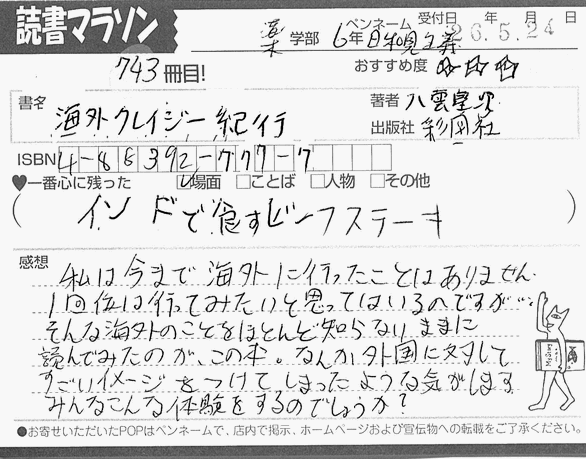 読書マラソン
743冊目!
薬 学部 6年 ペンネーム 日和見主義
受付日 26年5月24日
おすすめ度 ☆☆☆
書名 海外クレイジー紀行
著者 八雲星次
出版社 彩図社
ISBN 4-86392-777-7
♥一番心に残った 場面 ことば 人物 その他
( インドで食すビーフステーキ )
感想
私は今まで海外に行ったことはありません.
1回位は行ってみたいと思ってはいるのですが…
そんな海外のことをほとんど知らないままに
読んでみたのが、この本。なんか外国に対して
すごいイメージをつけてしまったような気がします
みんなこんな体験をするのでしょうか?
●お寄せいただいたPOPはペンネームで、店内で掲示、ホームページおよび宣伝物への転載をご了承ください。